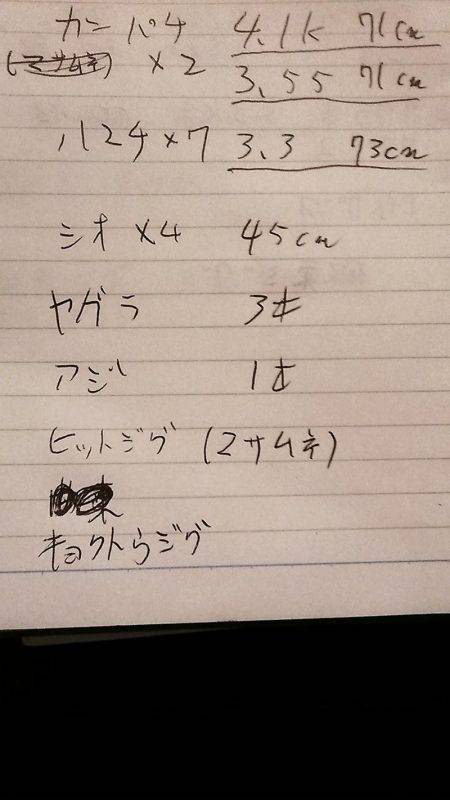 カンパチ 4.1k 71cm
×2 3.55 71cm
ハマチ×7 3.3 73cm
シオ ×4 45cm
ヤガラ 3本
アジ 1本
ヒットジグ (マサムネ)
キョクトウジグ